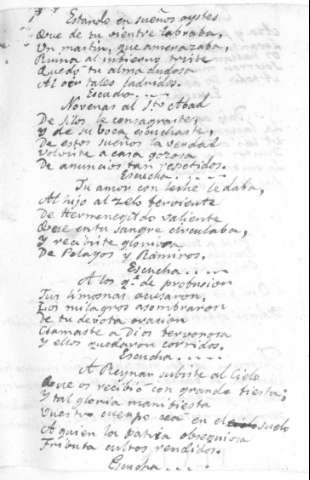 Estando en sueños oystes
Que de tu vientre labraba,
Un mastin, que amenazaba,
Ruina al infierno triste
Quedó tu alma dudosa
Al oir tales ladridos.
Escucha....
Novenas al Sto Abad
De Silos le consagraites,
Y de su boca escuchaste,
De estos sueños la verdad
Volviste a casa gozosa
De anuncios tan repetidos.
Escucha....
Tu amor con leche le daba,
Al hijo al zelo ferviente
De Hermenegildo valiente
Que en tu sangre circulaba,
Y recibiste gloriosa
De Pelagos y Ramiros.
Escucha....
A los qe. de profusion
Tus limosnas acusaron,
Los milagros asombraron
de tu devota oracion
Clamaste a Dios fervorosa
Y ellos quedaron corridos.
Escucha....
A Reynar subiste al Cielo
Que os recibió con grande fiesta;
Y tal gloria manifiesta
Vuestro cuerpo acá en el suelo
A quien la Patria obsequiosa
Tributa cultos rendidos.
Escucha....